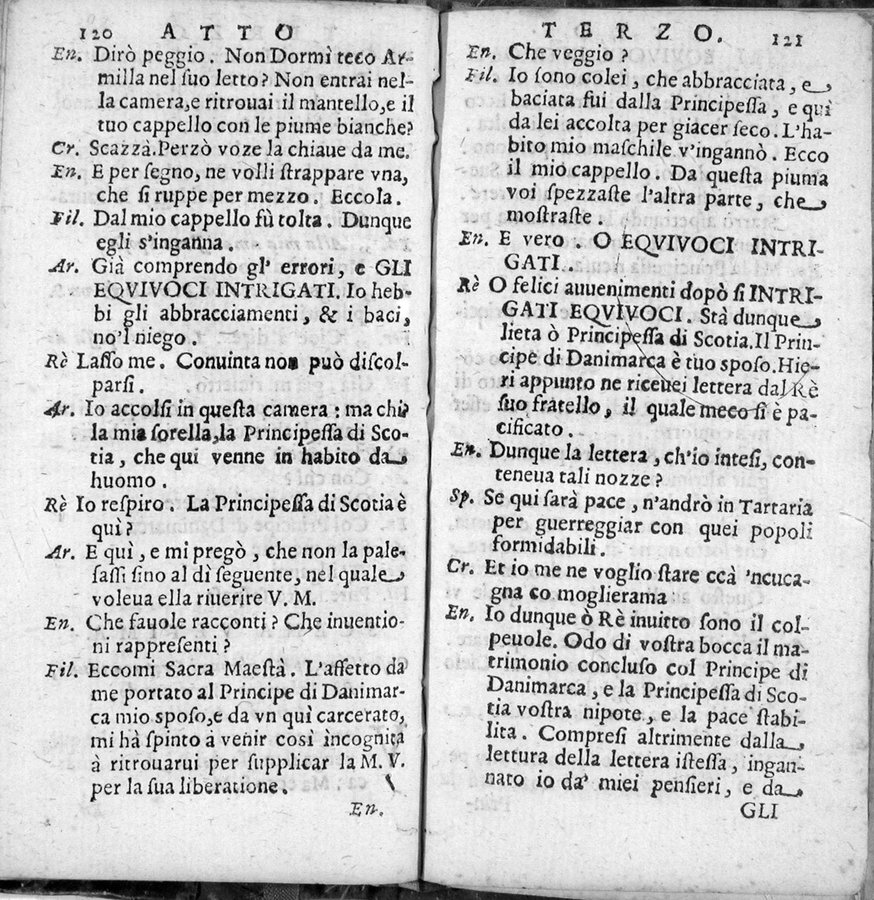 120 ATTO
En. Dirò peggio. Non Dormì teco Ar-
milla nel ſuo letto? Non entrai nel-
la camera,e ritrouai il mantello,e il
tuo cappello con le piume bianche?
Cr. Scazzà.Perzò voze la chiaue da me.
En. E per ſegno, ne volli ſtrappare vna,
che ſi ruppe per mezzo. Eccola.
Fil. Dal mio cappello fù tolta. Dunque
egli s'inganna.
Ar. Già comprendo gl' errori, e GLI
EQVIVOCI INTRIGATI. Io heb-
bi gli abbracciamenti, & i baci,
no'l niego.
Rè Laſſo me. Conuinta non può diſcol-
parſi.
Ar. Io accolſi in queſta camera: ma chi?
la mia ſorella,la Principeſſa di Sco-
tia, che qui venne in habito da
huomo.
Rè Io reſpiro. La Principeſſa di Scotia è
quì?
Ar. E quì, e mi pregò, che non la pale-
ſaſſi ſino al dì ſeguente, nel quale
voleua ella riuerire V. M.
En. Che fauole racconti? Che inuentio-
ni rappreſenti?
Fil. Eccomi Sacra Maeſtà. L'affetto da
me portato al Principe di Danimar-
ca mio ſpoſo,e da vn quì carcerato,
mi hà ſpinto a venir così incognita
à ritrouarui per ſupplicar la M. V.
per la ſua liberatione.
En.
TERZO. 121
En. Che veggio?
Fil. Io ſono colei, che abbracciata, e
baciata fui dalla Principeſſa, e quì
da lei accolta per giacer ſeco. L'ha-
bito mio maſchile v'ingannò. Ecco
il mio cappello. Da queſta piuma
voi ſpezzaſte l'altra parte, che
moſtraſte.
En. E vero. O EQVIVOCI INTRI-
GATI..
Rè O felici auuenimenti dopò ſi INTRI-
GATI EQVIVOCI. Stà dunque
lieta ò Principeſſa di Scotia.Il Prin-
cipe di Danimarca è tuo ſpoſo.Hie-
ri appunto ne riceuei lettera dal Rè
ſuo fratello, il quale meco ſi è pa-
cificato.
En. Dunque la lettera, ch'io inteſi, con-
teneua tali nozze?
Sp. Se qui ſarà pace, n'andrò in Tartaria
per guerreggiar con quei popoli
formidabili.
Cr. Et io me ne voglio ſtare ccà 'ncuca-
gna co moglierama
En. Io dunque ò Rè inuitto ſono il col-
peuole. Odo di voſtra bocca il ma-
trimonio concluſo col Principe di
Danimarca, e la Principeſſa di Sco-
tia voſtra nipote, e la pace ſtabi-
lita. Compreſi altrimente dalla
lettura della lettera iſteſſa, ingan-
nato io da' miei penſieri, e da
GLI